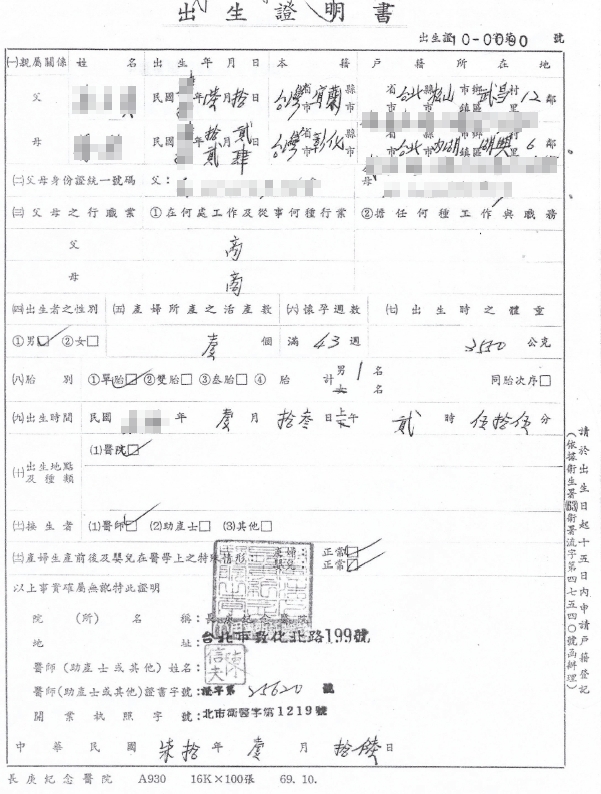 出生證明書
出生證 10-0090 號
㈠親屬關係 姓名 出生年月日 本籍 戶籍所在地
父 民國 年 月拾日 台灣省宜蘭縣市 省市台北縣市松山市鎮鄉區武昌村里12鄰
母 民國 年拾貳月貳肆日 台灣省彰化縣市 省市台北縣市內湖市鎮鄉區湖興村里6鄰
㈡父母身份證統一號碼 父: 母:
㈢父母之行職業 ①在何處工作及從事何種行業 ②擔任何種工作與職務
父 商
母 商
㈣出生者之性別 ㈤產婦所產之活產數 ㈥懷孕週數 ㈦出生時之體重
①男☑ ②女□ 壹個 滿43週 公克
㈧胎別 ①單胎☑ ②雙胎□ ③叁胎□ ④ 胎 計 男1名 女 名 同胎次序□
㈨出生時間 民國 年 壹月 拾叁日 午 貳時 伍拾伍分
㈩出生地點及種類 (1)醫院☑
㈪接生者 (1)醫師☑ (2)助產士□ (3)其他□
㈫產婦生產前後及嬰兒在醫學上之特殊情形: 產婦: 正常☑
嬰兒: 正常☑
以上事實確屬無訛特此證明
院(所)名稱:長庚紀念醫院
地址:台北市敦化北路199號
醫師(助產士或其他)姓名:
陳信夫
醫師(助產士或其他)證書字號:證字第25620號
開業執照字號:北市衛醫字第1219號
中華民國柒拾年壹月拾陸日
長庚紀念醫院 A930 16K×100張 69. 10.
請於出生日起十五日內申請戶籍登記
(依據衛生署 衛署流字第四七五四〇號函辦理)